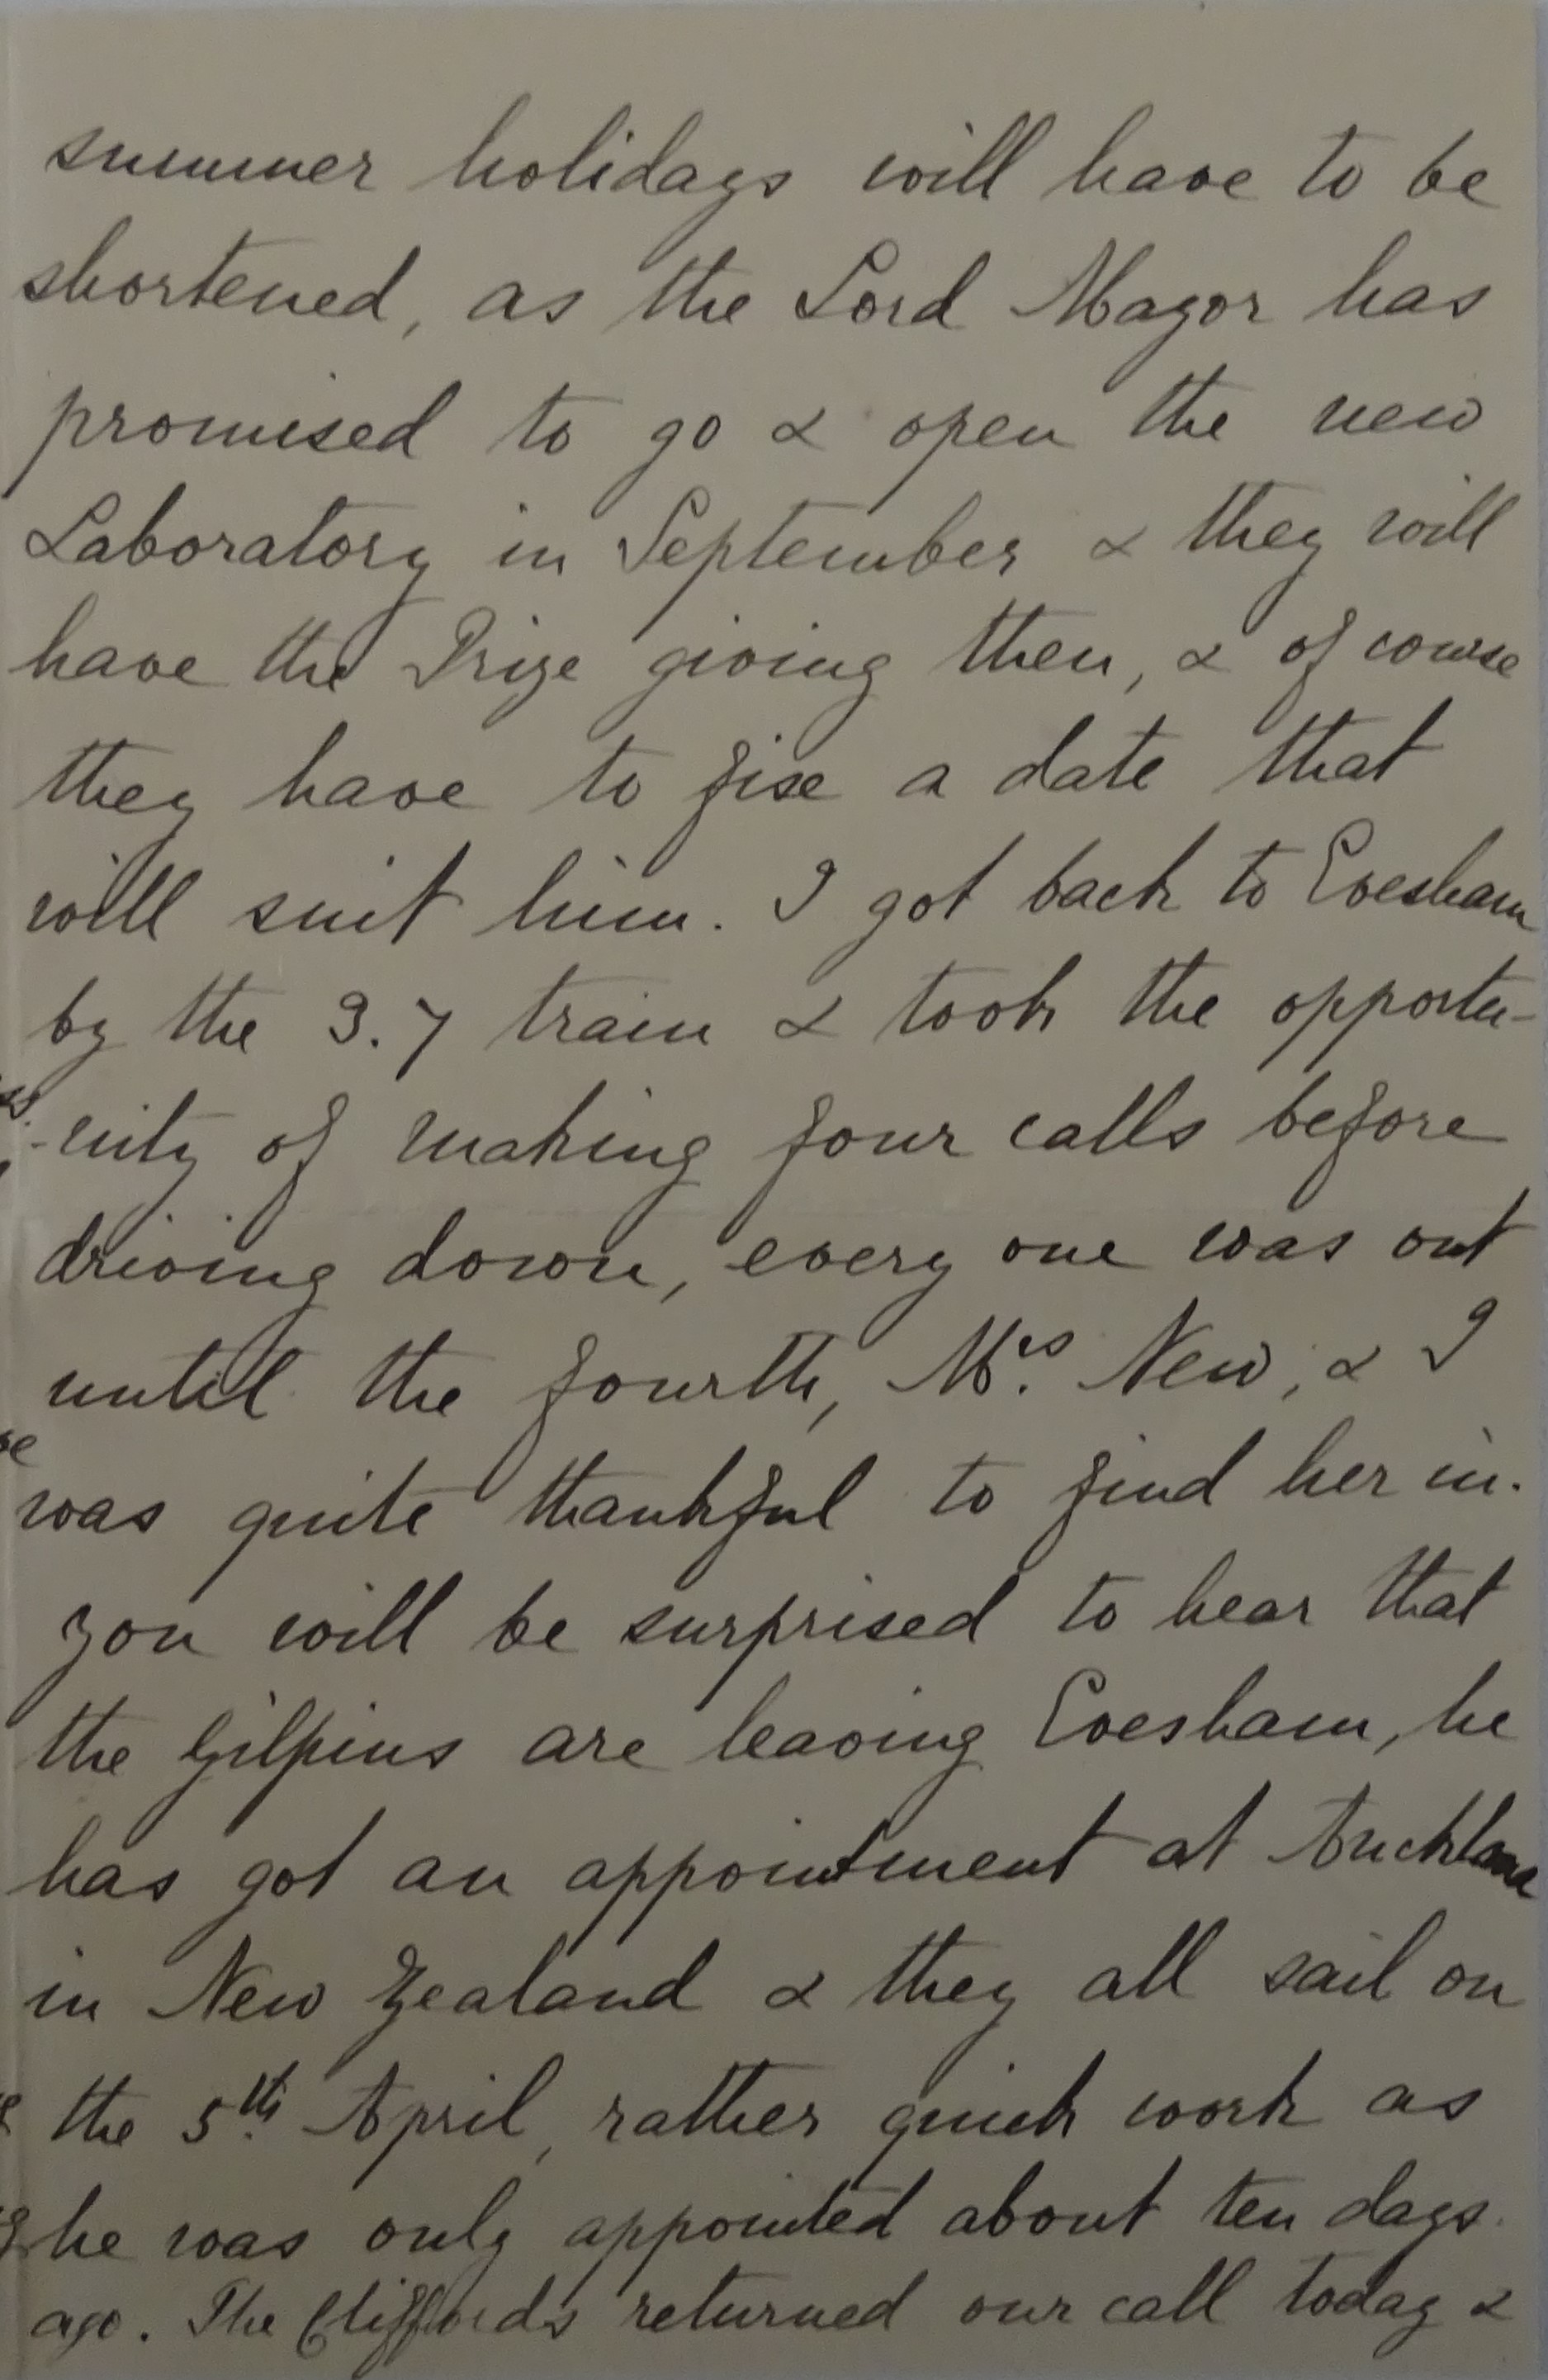 summer holidays will have to be
shortened, as the Lord Mayor has
promised to go & open the new
Laboratory in September & they will
have the Prize giving then, & of course
they have to fixe a date that
will suit him. I got back to Evesham
by the 3.7 train & took the opportu-
-nity of making four calls before
driving down, every one was out
until the fourth, Mrs. New, & I
was quite thankful to find her in.
You will be surprised to hear that
the Gilpins are leaving Evesham, he
has got an appointment at Auckland
in New Zealand & they all sail on
the 5th. April, rather quick work as
he was only appointed about ten days
ago. The Cliffords returned our call today &